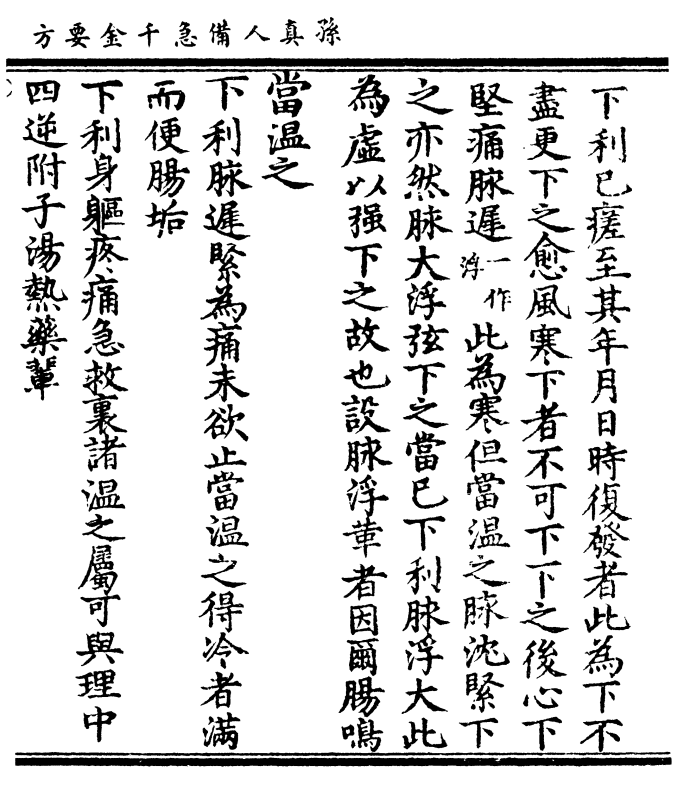 孫真人備急千金要方
下利已瘥至其年月日時復發者此為下不
盡更下之愈風寒下者不可下下之後心下
堅痛脉遲一作浮此為寒但當温之脉沈緊下
之亦然脉大浮弦下之當已下利脉浮大此
為虛以强下之故也設脉浮革者因爾腸鳴
當温之
下利脉遲緊為痛未欲止當温之得冷者滿
而便腸垢
下利身軀疼痛急救裏諸温之屬可與理中
四逆附子湯熱藥輩